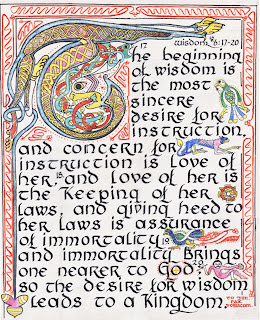 Wisdom 6:17-20
17 The beginning
of wisdom is
the most
sincere
desire for
instruction,
and concern for
instruction is love of
her, 18 and love of her is
the keeping of her
laws, and giving heed to
her laws is assurance
of immortality, 19
and immortality brings
one nearer to God; 20
so the desire for wisdom
leads to a Kingdom.